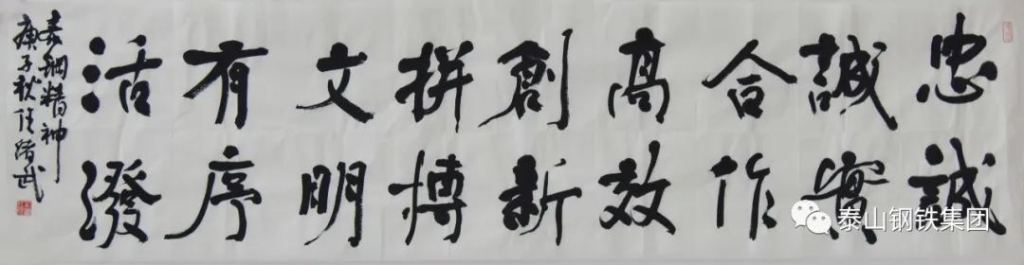 忠誠
誠實
合作
高效
創新
拼搏
文明
有序
活潑
泰鋼精神
庚子秋
泰山钢铁集团